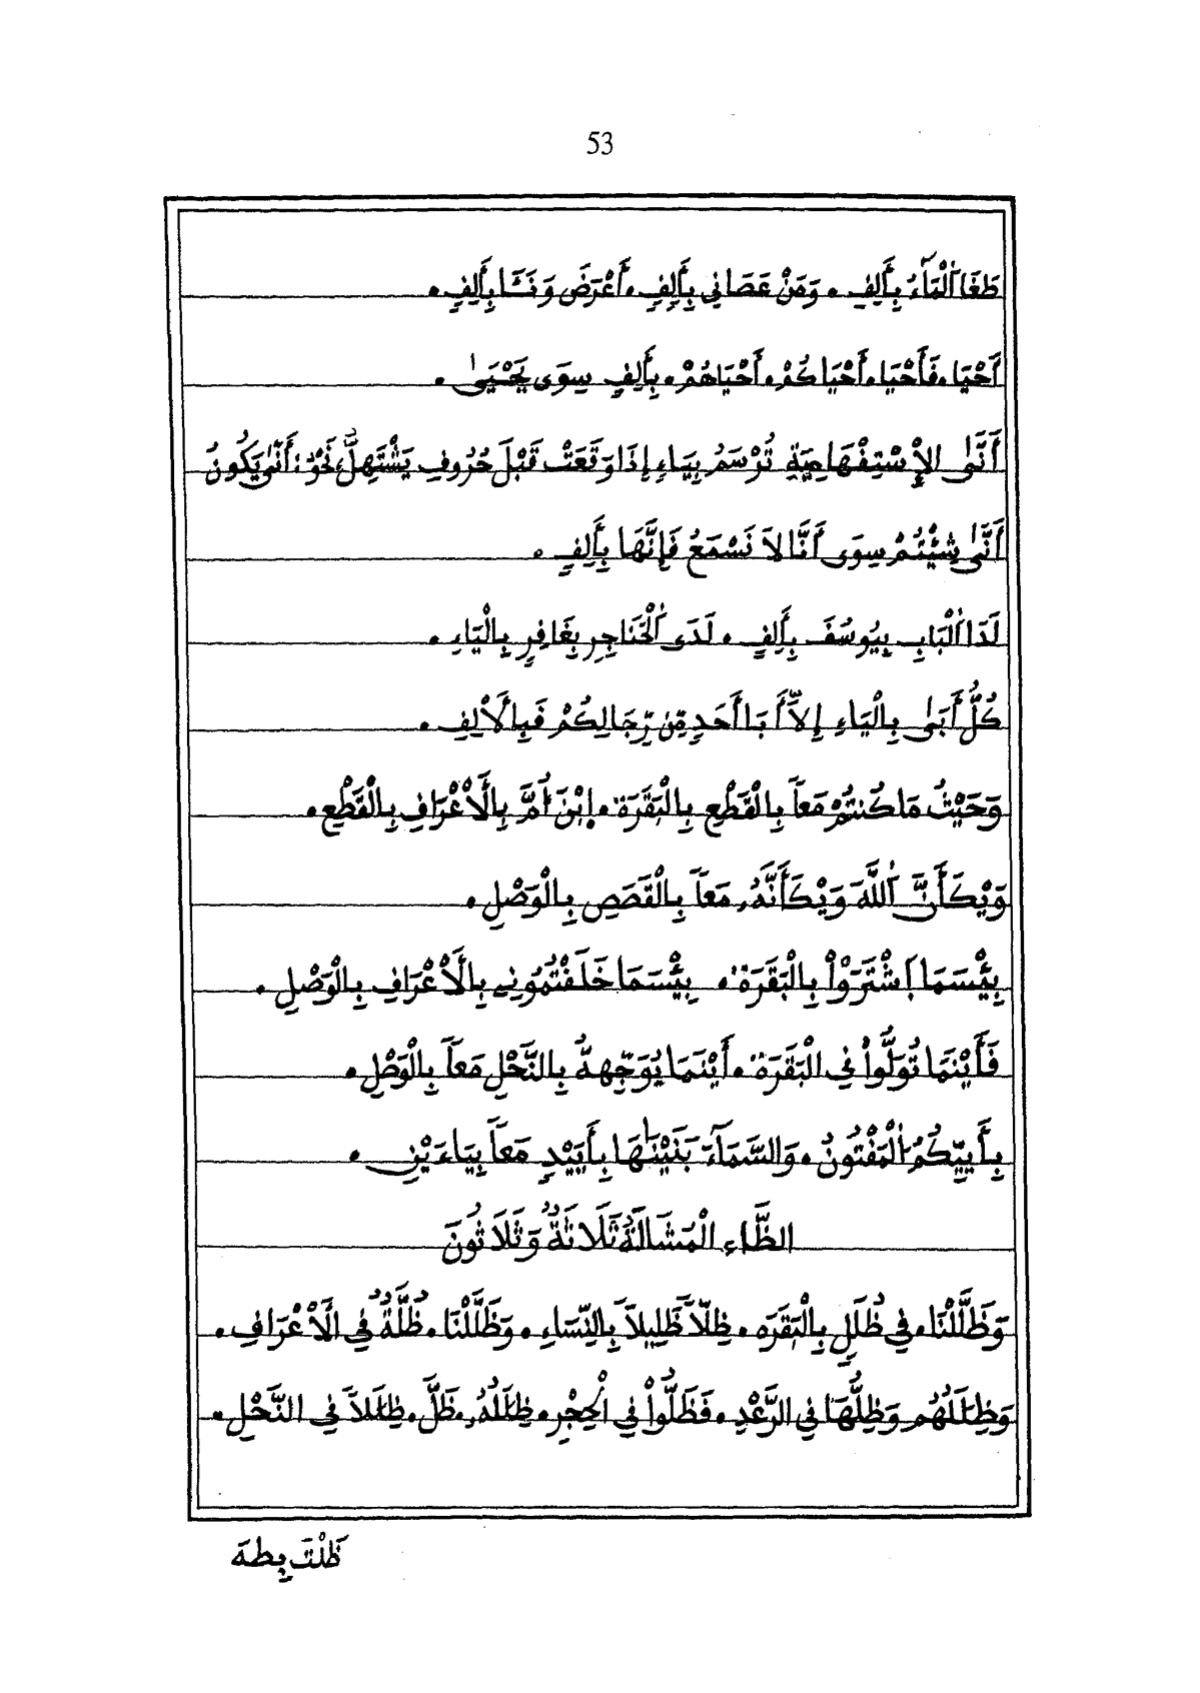 53
طَغَا اَ۬لْمَآءُ بِأَلِفٍ . وَمَنْ عَصَانِي بِأَلِفٍ . أَعْرَضَ وَنَـَٔا بِأَلِفٍ .
أَحْيَا . فَأَحْيَا . أَحْيَاكُمْ . أَحْيَاهُمْ . بِأَلِفٍ سِوَى يَحْيَىٰ .
أَنَّىٰ الِاسْتِفْهَامِيَةِ تُرْسَمُ بِيَاءٍ إِذَا وَقَعَتْ قَبْلَ حُرُوفِ يَشْتَهِلُّ نَحْوَ : أَنَّىٰ يَكُونُ
أَنَّىٰ شِئْتُمْ سِوَى أَنَّا لَا نَسْمَعُ فَإِنَّهَا بِأَلِفٍ .
لَدَا اَ۬لْبَابِ بِيُوسُفَ بِأَلِفٍ . لَدَى اَ۬لْحَنَاجِرِ بِغَافِرٍ بِالْيَاءِ .
كُلُّ أَبَىٰ بِالْيَاءِ إِلَّآ أَبَا أَحَدٍ مِّن رِّجَالِكُمْ فَبِالْأَلِفِ .
وَحَيْثُ مَا كُنتُمْ مَعاً بِالْقَطْعِ بِالْبَقَرَةِ . اِبْنَ أُمَّ بِالْأَعْرَافِ بِالْقَطْعِ .
وَيْكَأَنَّ اَ۬للَّهَ وَيْكَأَنَّهُۥ مَعاً بِالْقَصَصِ بِالْوَصْلِ .
بِئْسَمَا اَ۪شْتَرَوْاْ بِالْبَقَرَةِ . بِئْسَمَا خَلَفْتُمُونِي بِالْأَعْرَافِ بِالْوَصْلِ .
فَأَيْنَمَا تُوَلُّواْ فِي الْبَقَرَةِ . أَيْنَمَا يُوَجِّههُّ بِالنَّحْلِ مَعاً بِالْوَصْلِ .
بِأَييِّكُمُ اُ۬لْمَفْتُونُ . وَالسَّمَآءَ بَنَيْنَٰهَا بِأَيَيْدٍ مَعاً بِيَاءَيْنِ .
الظَّاءِ الْمَشَالَةُ ثَلَاثَةٌ وَثَلَاثُونَ
وَظَلَّلْنَا . فِي ظُلَلٍ بِالْبَقَرَه . ظِلّاً ظَلِيلاً بِالنِّسَاءِ . وَظَلَّلْنَا . ظُلَّةٌ فِي الْأَعْرَافِ .
وَظِلَٰلُهُم وَظِلُّهَا فِي الرَّعْدِ . فَظَلُّواْ فِي الْحِجْرِ . ظِلَٰلُهُۥ . ظَلَّ . ظِلَٰلاً فِي النَّحْلِ .
ظَلْتَ بِطهَ